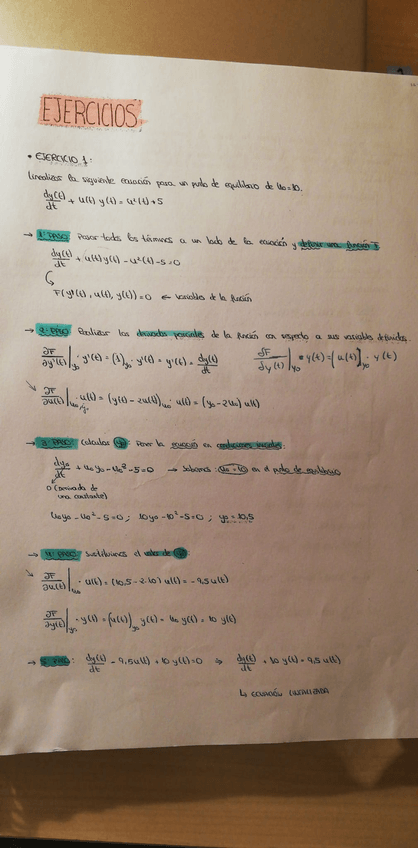 EJERCICIOS
• EJERCICIO 1:
Linealizar la siguiente ecuación para un punto de equilibrio de u₀=10.
dy(t)/dt + u(t) y(t) = u²(t)+5
→ 1er PASO: Pasar todos los términos a un lado de la ecuación y definir una función F
dy(t)/dt + u(t)y(t) - u²(t) - 5 = 0
F(y'(t), u(t), y(t)) = 0 ← variables de la función
→ 2º PASO: Realizar las derivadas parciales de la función con respecto a sus variables definidas.
∂F/∂y'(t)|y₀ · y'(t) = (1)y₀ · y'(t) = y'(t) = dy(t)/dt    ∂F/∂y(t)|y₀ · y(t) = [u(t)]y₀ · y(t)
∂F/∂u(t)|u₀,y₀ · u(t) = (y(t) - 2u(t))u₀ · u(t) = (y₀ - 2u₀) u(t)
→ 3er PASO: Calcular y₀. Poner la ecuación en condiciones iniciales:
dy₀/dt + u₀y₀ - u₀² - 5 = 0 → Sabemos: u₀=10 en el punto de equilibrio
0 (derivada de
una constante)
u₀y₀ - u₀² - 5 = 0 ; 10y₀ - 10² - 5 = 0 ; y₀ = 10,5
→ 4º PASO: Sustituimos el valor de y₀
∂F/∂u(t)|u₀ · u(t) = (10,5 - 2·10) u(t) = -9,5 u(t)
∂F/∂y(t)|y₀ · y(t) = (u(t))y₀ y(t) = u₀ y(t) = 10 y(t)
→ 5º PASO: dy(t)/dt - 9,5u(t) + 10 y(t) = 0 ⇒ dy(t)/dt + 10 y(t) = 9,5 u(t)
↳ ECUACIÓN LINEALIZADA